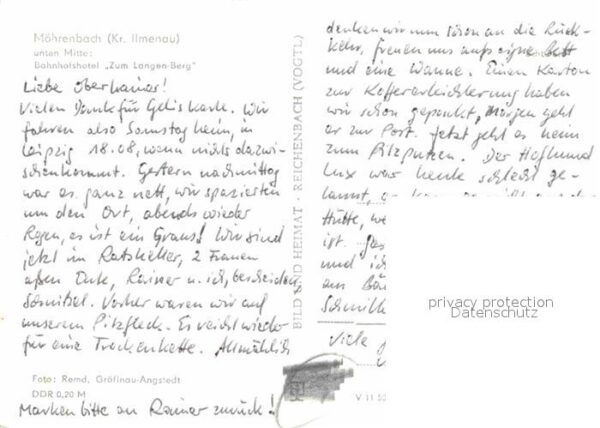 Möhrenbach (Kr. Ilmenau)
unten Mitte:
Bahnhofshotel „Zum Langen-Berg"
Liebe Oberhainer!
Vielen Dank für Gelis Karte. Wir
fahren also Samstag heim, in
Leipzig 18.08, wenn nichts dazwi-
schenkommt. Gestern nachmittag
war es ganz nett, wir spazierten
um den Ort, abends wieder
Regen, es ist ein Graus! Wir sind
jetzt im Ratskeller, 2 Frauen
aßen Ente, Rainer u. ich, bescheiden,
Schnitzel. Vorher waren wir auf
unserem Pilzfleck. Es reicht wieder
für eine Trockenkette. Allmählich
Foto: Remd, Gräfinau-Angstedt
DDR 0,20 M
Marken bitte an Rainer zurück!
BILD UND HEIMAT · REICHENBACH (VOGTL)
denken wir nun schon an die Rück-
kehr, freuen uns aufs eigne Bett
und eine Wanne. Einen Karton
zur Koffererleichterung haben
wir schon gepackt, morgen geht
er zur Post. Jetzt geht es heim
zum Pilzputzen. Der Hofhund
Lux war heute schlecht ge-
launt, er
Hütte, we
ist.
und ich
aus
Schnitt
Viele
privacy protection
Datenschutz
V 11 50